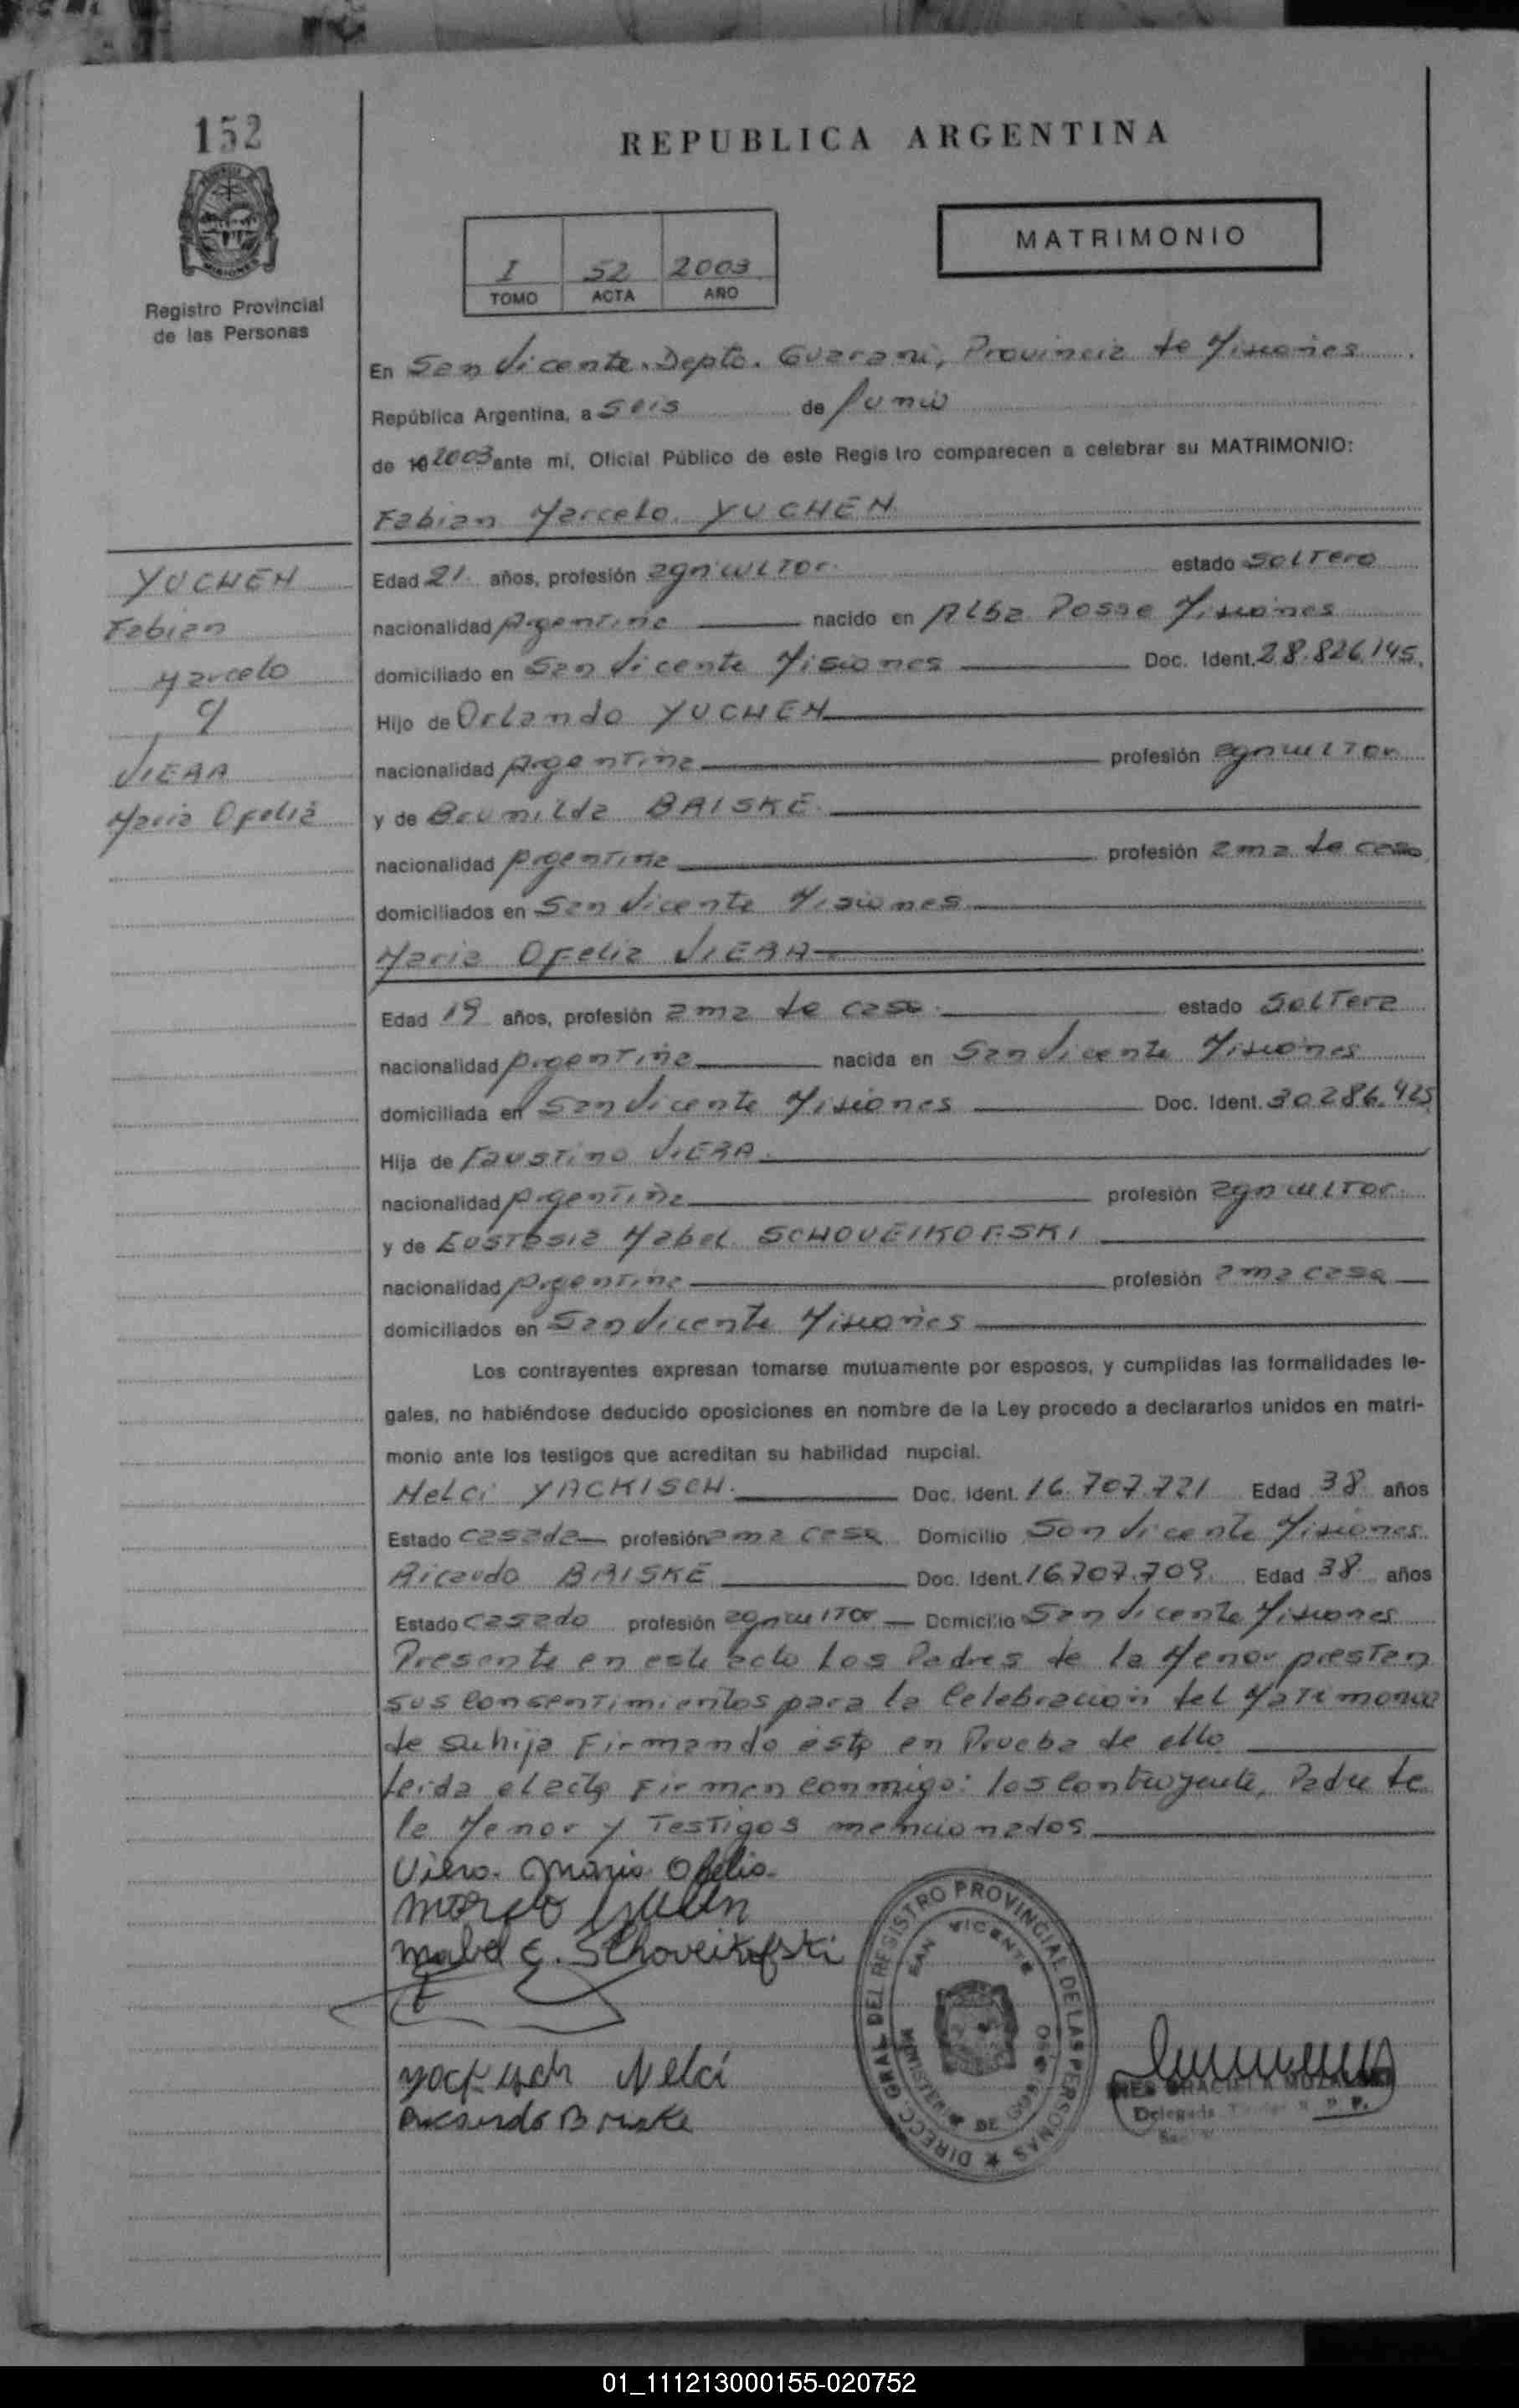 152
REPUBLICA ARGENTINA
MISIONES
Registro Provincial
de las Personas
I 52 2003
TOMO ACTA AÑO
MATRIMONIO
En San Vicente, Depto. Guarani, Provincia de Misiones
República Argentina, a Seis de Junio
de 19 2003 ante mí, Oficial Público de este Registro comparecen a celebrar su MATRIMONIO:
Fabian Marcelo YUCHEN
YUCHEN
Fabian
Marcelo
c/
VIERA
Maria Ofelia
Edad 21 años, profesión agricultor estado Soltero
nacionalidad Argentina nacido en Alba Posse Misiones
domiciliado en San Vicente Misiones Doc. Ident. 28.826.145
Hijo de Orlando YUCHEN
nacionalidad Argentina profesión agricultor
y de Brunilda BRISKE
nacionalidad Argentina profesión ama de casa
domiciliados en San Vicente Misiones
Maria Ofelia VIERA
Edad 19 años, profesión ama de casa estado Soltera
nacionalidad Argentina nacida en San Vicente Misiones
domiciliada en San Vicente Misiones Doc. Ident. 30286.425
Hija de Faustino VIERA
nacionalidad Argentina profesión agricultor
y de Eustasia Mabel SCHOVEIKOFSKI
nacionalidad Argentina profesión ama casa
domiciliados en San Vicente Misiones
Los contrayentes expresan tomarse mutuamente por esposos, y cumplidas las formalidades le-
gales, no habiéndose deducido oposiciones en nombre de la Ley procedo a declararlos unidos en matri-
monio ante los testigos que acreditan su habilidad nupcial.
Nelci YACKISCH Doc. Ident. 16.707.721 Edad 38 años
Estado Casada profesión ama casa Domicilio San Vicente Misiones
Ricardo BRISKE Doc. Ident. 16.707.709. Edad 38 años
Estado Casado profesión agricultor Domicilio San Vicente Misiones
Presente en este acto los Padres de la Menor prestan
sus consentimientos para la Celebracion del Matrimonio
de su hija Firmando esta en Prueba de ello
Leida el acta Firman conmigo: los Contrayente, Padre de
la Menor y Testigos mencionados
Viera Maria Ofelia
Marcelo Yuchen
Mabel E. Schoveikofski
Yackisch Nelci
Ricardo Briske
DIRECC. GRAL. DEL REGISTRO PROVINCIAL DE LAS PERSONAS
SAN VICENTE
MINISTERIO DE GOBIERNO
INES GRACIELA
Delegada Titular R. P. P.
01_111213000155-020752